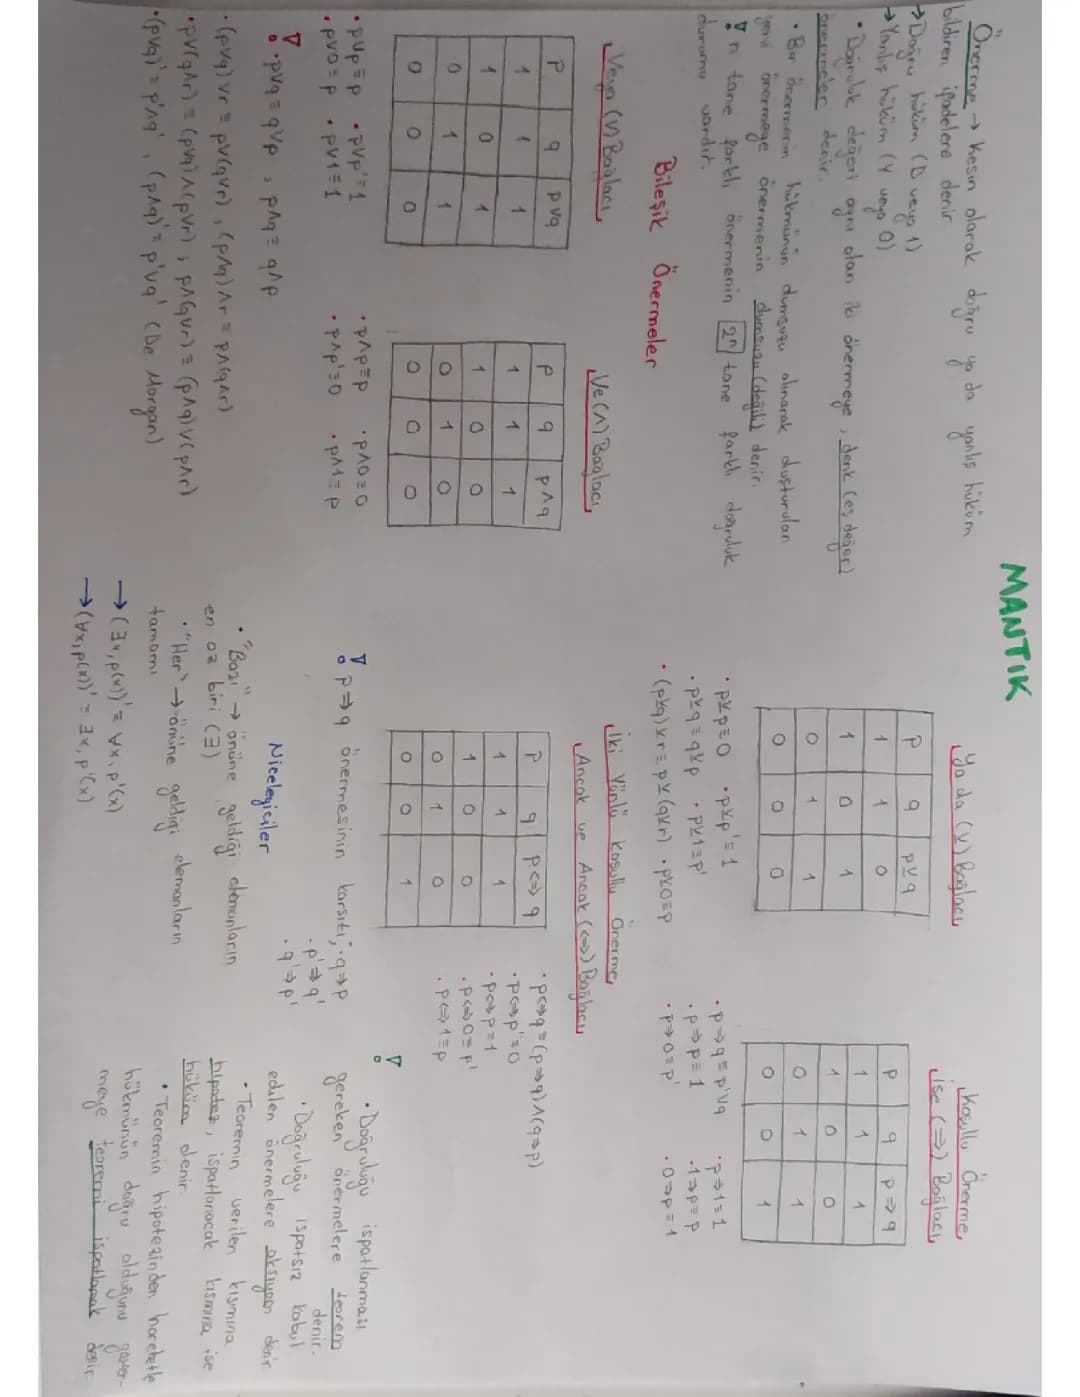 MANTIK
Önerme → Kesin olarak doğru ya da yanlış hüküm
bildiren ifadelere denir
→ Doğru hüküm (D veya 1)
→ Yanlış hüküm (Y veya 0)
• Doğruluk değeri aynı olan iki önermeye, denk (eş değer)
önermeler denir.
• Bir önermenin hükmünün olumsuzu alınarak oluşturulan
yeni önermeye önermenin olumsuzu (değili) denir.
n tane farklı önermenin 2ⁿ tane farklı doğruluk
durumu vardır.
Bileşik Önermeler
Veya (∨) Bağlacı
p q p∨q
1 1 1
1 0 1
0 1 1
0 0 0
• p∨p≡p • p∨p'≡1
• p∨0≡p • p∨1≡1
Ve (∧) Bağlacı
p q p∧q
1 1 1
1 0 0
0 1 0
0 0 0
• p∧p≡p • p∧0≡0
• p∧p'≡0 • p∧1≡p
• p∨q ≡ q∨p , p∧q ≡ q∧p
• (p∨q)∨r ≡ p∨(q∨r) , (p∧q)∧r ≡ p∧(q∧r)
• p∨(q∧r) ≡ (p∨q)∧(p∨r) , p∧(q∨r) ≡ (p∧q)∨(p∧r)
• (p∨q)' ≡ p'∧q' , (p∧q)' ≡ p'∨q' (De Morgan)
Ya da (⊻) Bağlacı
p q p⊻q
1 1 0
1 0 1
0 1 1
0 0 0
• p⊻p≡0 • p⊻p'≡1
• p⊻q≡q⊻p • p⊻1≡p'
• (p⊻q)⊻r≡p⊻(q⊻r) • p⊻0≡p
Koşullu Önerme
İse (⇒) Bağlacı
p q p⇒q
1 1 1
1 0 0
0 1 1
0 0 1
• p⇒q ≡ p'∨q • p⇒1≡1
• p⇒p≡1 • 1⇒p≡p
• p⇒0≡p' • 0⇒p≡1
İki Yönlü Koşullu Önerme
Ancak ve Ancak (⇔) Bağlacı
p q p⇔q
1 1 1
1 0 0
0 1 0
0 0 1
• p⇔q≡(p⇒q)∧(q⇒p)
• p⇔p'≡0
• p⇔p≡1
• p⇔0≡p'
• p⇔1≡p
p⇒q önermesinin karşıtı; • q⇒p
• p'⇒q'
• q'⇒p'
Niceleyiciler
• "Bazı" → önüne geldiği elemanların
en az biri (∃)
• "Her" → önüne geldiği elemanların
tamamı
→ (∃x, p(x))' ≡ ∀x, p'(x)
→ (∀x, p(x))' ≡ ∃x, p'(x)
• Doğruluğu ispatlanması
gereken önermelere teorem
denir.
• Doğruluğu ispatsız kabul
edilen önermelere aksiyom denir
• Teoremin verilen kısmına
hipotez, ispatlanacak kısmına ise
hüküm denir.
• Teoremin hipotezinden hareketle
hükmünün doğru olduğunu göster-
meye teoremi ispatlamak denir.